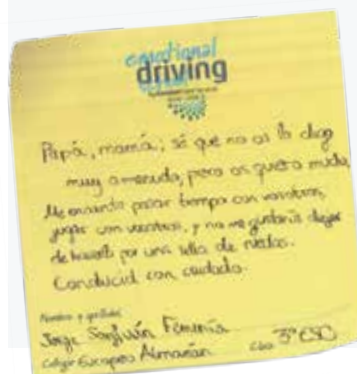 emotional
driving
Papá, mamá; sé que no os lo digo
muy a menudo, pero os quiero mucho,
Me encanta pasar tiempo con vosotros,
jugar con vosotros, y no me gustaría dejar
de hacerlo por una silla de ruedas.
Conducid con cuidado.
Nombre y apellidos
Jorge Sanjuán Femenía
Colegio Europeo Almazán Curso 3º ESO